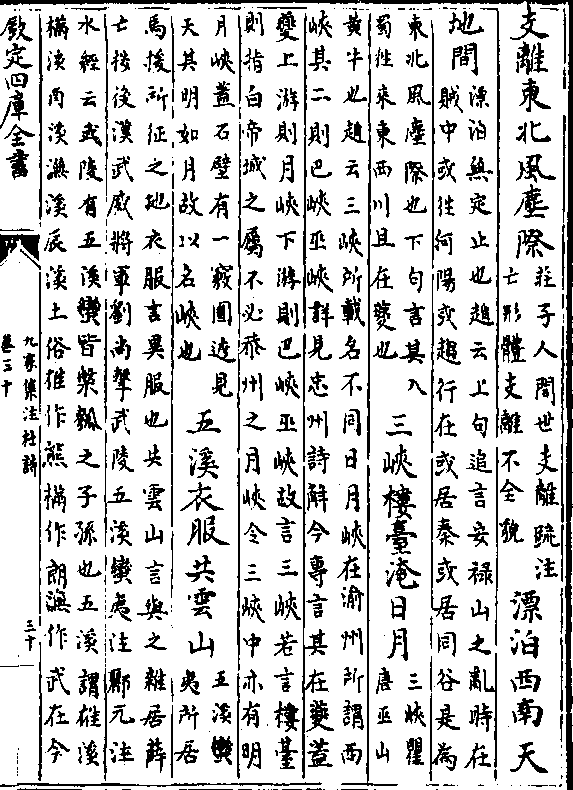 支離東北風塵際
莊子人間世支離疏注
亡形體支離不全貌
漂泊西南天
地間
漂泊無定止也趙云上句追言安禄山之亂時在
賊中或往河陽或趨行在或居秦或居同谷是為
東北風塵際也下句言其入
蜀往來東西川且在夔也
三峽樓臺淹日月
三峽瞿
唐巫山
黄牛也趙云三峽所載名不同日月峽在渝州所謂西
峽其二則巴峽巫峽詳見忠州詩解今專言其在夔蓋
夔上游則月峽下游則巴峽巫峽故言三峽若言樓臺
則指白帝城之屬不必州之月峽今三峽中亦有明
月峽蓋石壁有一竅圓透見
天其明如月故以名峽也
五溪衣服共雲山
五溪蠻
夷所居
馬援所征之地衣服言異服也共雲山言與之雜居薛
亡按後漢武威將軍劉尚擊武陵五溪蠻夷注酈元注
水經云武陵有五溪蠻皆槃瓠之子孫也五溪謂雄溪
樠溪酉溪潕溪辰溪土俗雄作熊樠作朗潕作武在今
欽定四庫全書
九家集注杜詩
卷三十
三十